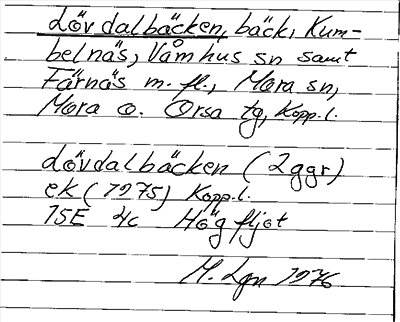 Lövdalbäcken, bäck, Kum-
belnäs, Våmhus sn samt
Färnäs m. fl., Mora sn,
Mora o. Orsa tg, Kopp. l.
Lövdalbäcken (2 ggr)
ek (1975) Kopp. l.
15E 4c Högfljot
M. Lgn 1976